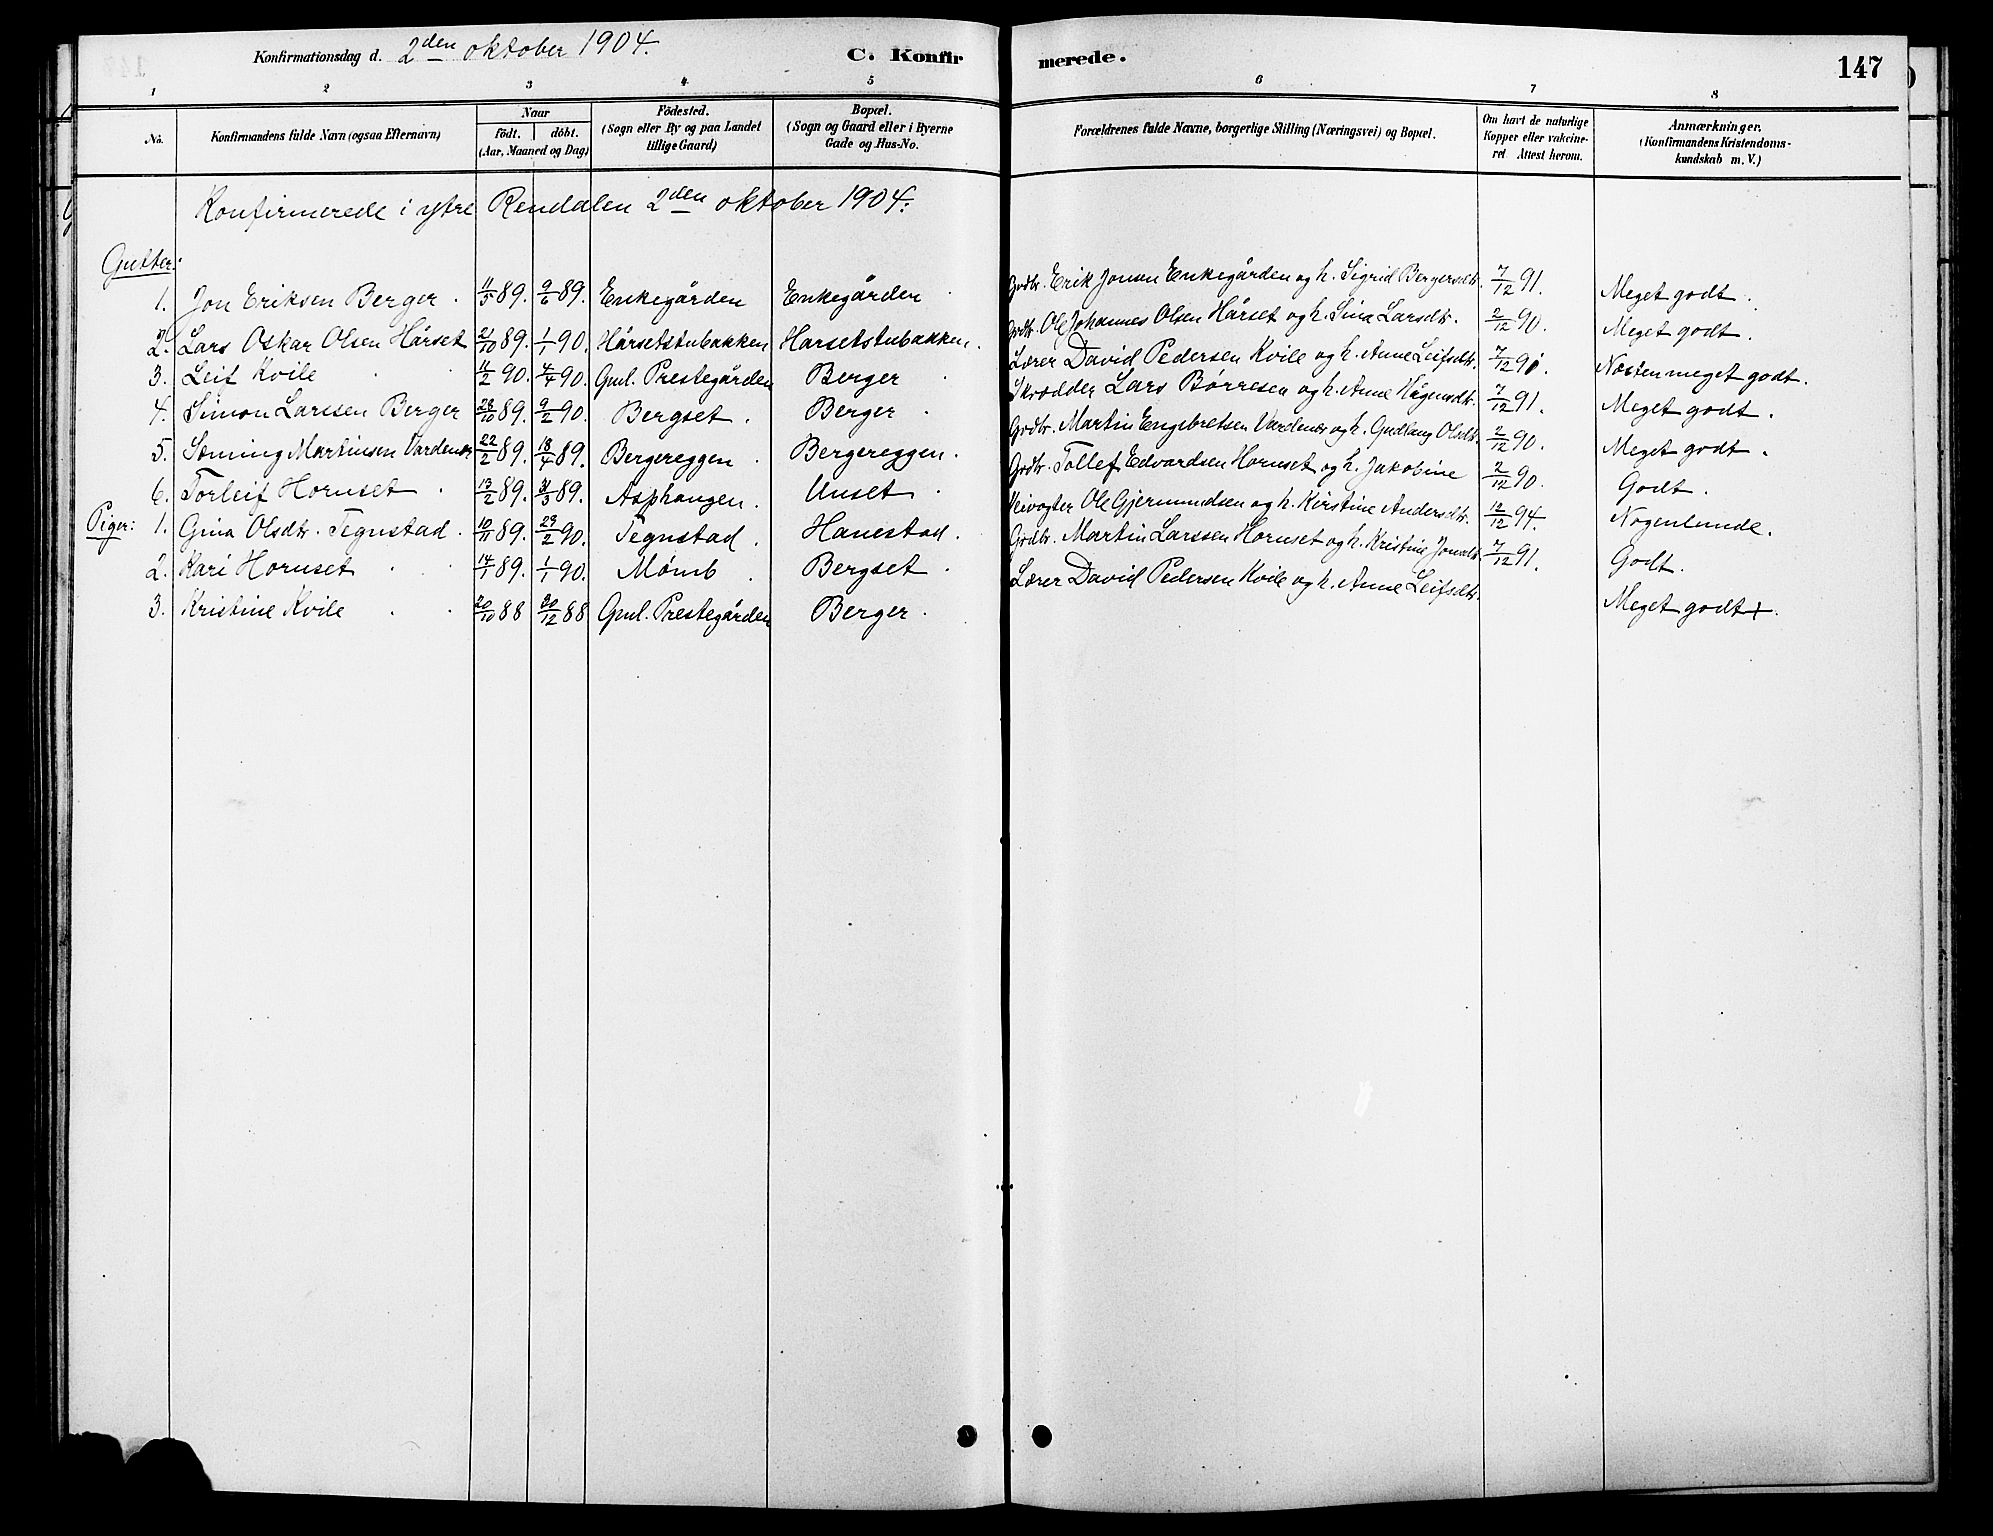 Konfirmationsdag d. 2den oktober 1904. C. Konfirmerede. 147
1 2 3 4 5 6 7 8
No. Konfirmandens fulde Navn (ogsaa Efternavn) Naar födt. döbt. (Aar, Maaned og Dag) Födested. (Sogn eller By og paa Landet tillige Gaard) Bopæl. (Sogn og Gaard eller i Byerne Gade og Hus-No. Forældrenes fulde Navne, borgerlige Stilling (Næringsvei) og Bopæl. Om havt de naturlige Kopper eller vakcineret Attest herom. Anmærkninger. (Konfirmandens Kristendomskundskab m. V.)
Konfirmerede i ytre Rendalen 2den oktober 1904:
Gutter:
1. Jon Eriksen Berger. 11/5 89. 9/6 89. Enkegården Enkegården Grdbr. Erik Jonsen Enkegården og h. Sigrid Bergersdtr. 7/12 91. Meget godt.
2. Lars Oskar Olsen Hårset 21/10 89. 1/1 90. Hårsetstubakken Harsetstubakken. Grdbr. Ole Johannes Olsen Hårset og h. Sina Larsdtr. 2/12 90. Meget godt.
3. Leif Kvile 11/2 90. 4/4 90. Gml. Prestegården Berger Lærer David Pedersen Kvile og h. Anne Leifsdtr. 7/12 91. Næsten meget godt.
4. Simon Larssen Berger 28/10 89. 9/2 90. Bergset. Berger. Skrædder Lars Børresen og h. Anne Hågensdtr. 7/12 91. Meget godt.
5. Sæming Martinsen Vardenær 22/2 89. 18/4 89. Bergereggen. Bergereggen. Grdbr. Martin Engebretsen Vardenær og h. Gudlaug Olsdtr. 2/12 90. Meget godt.
6. Torleif Hornset. 13/2 89. 31/3 89. Asphaugen. Unset. Grdbr. Tollef Edvardsen Hornset og h. Jakobine 2/12 90. Godt.
Piger: 1. Gina Olsdtr. Tegnstad. 10/11 89. 23/2 90. Tegnstad. Hanestad. Veivogter Ole Gjermundsen og h. Kirstine Andersdtr. 12/12 94. Nogenlunde.
2. Kari Hornset 14/1 89. 1/1 90. Mømb. Bergset. Grdbr. Martin Larssen Hornset og h. Kristine Jonsdtr. 7/12 91. Godt.
3. Kristine Kvile 20/10 88 30/12 88 Gml. Prestegården Berger. Lærer David Pedersen Kvile og h. Anne Leifsdtr. Meget godt +.